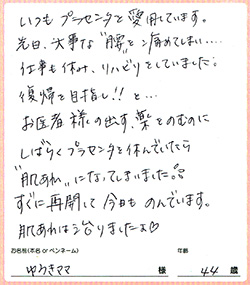 いつも プラセンタを愛用しています。
先日、大事な"腰"を痛めてしまい....
仕事も休み、リハビリをしていました。
復帰を目指し!! と...
お医者様の出す、薬をのむのに
しばらくプラセンタを休んでいたら
"肌あれ"になってしまいました。
すぐに再開して今日ものんでいます。
肌あれは治りましたよ♡
お名前(本名 or ペンネーム) 年齢
ゆうきママ 様 44 歳